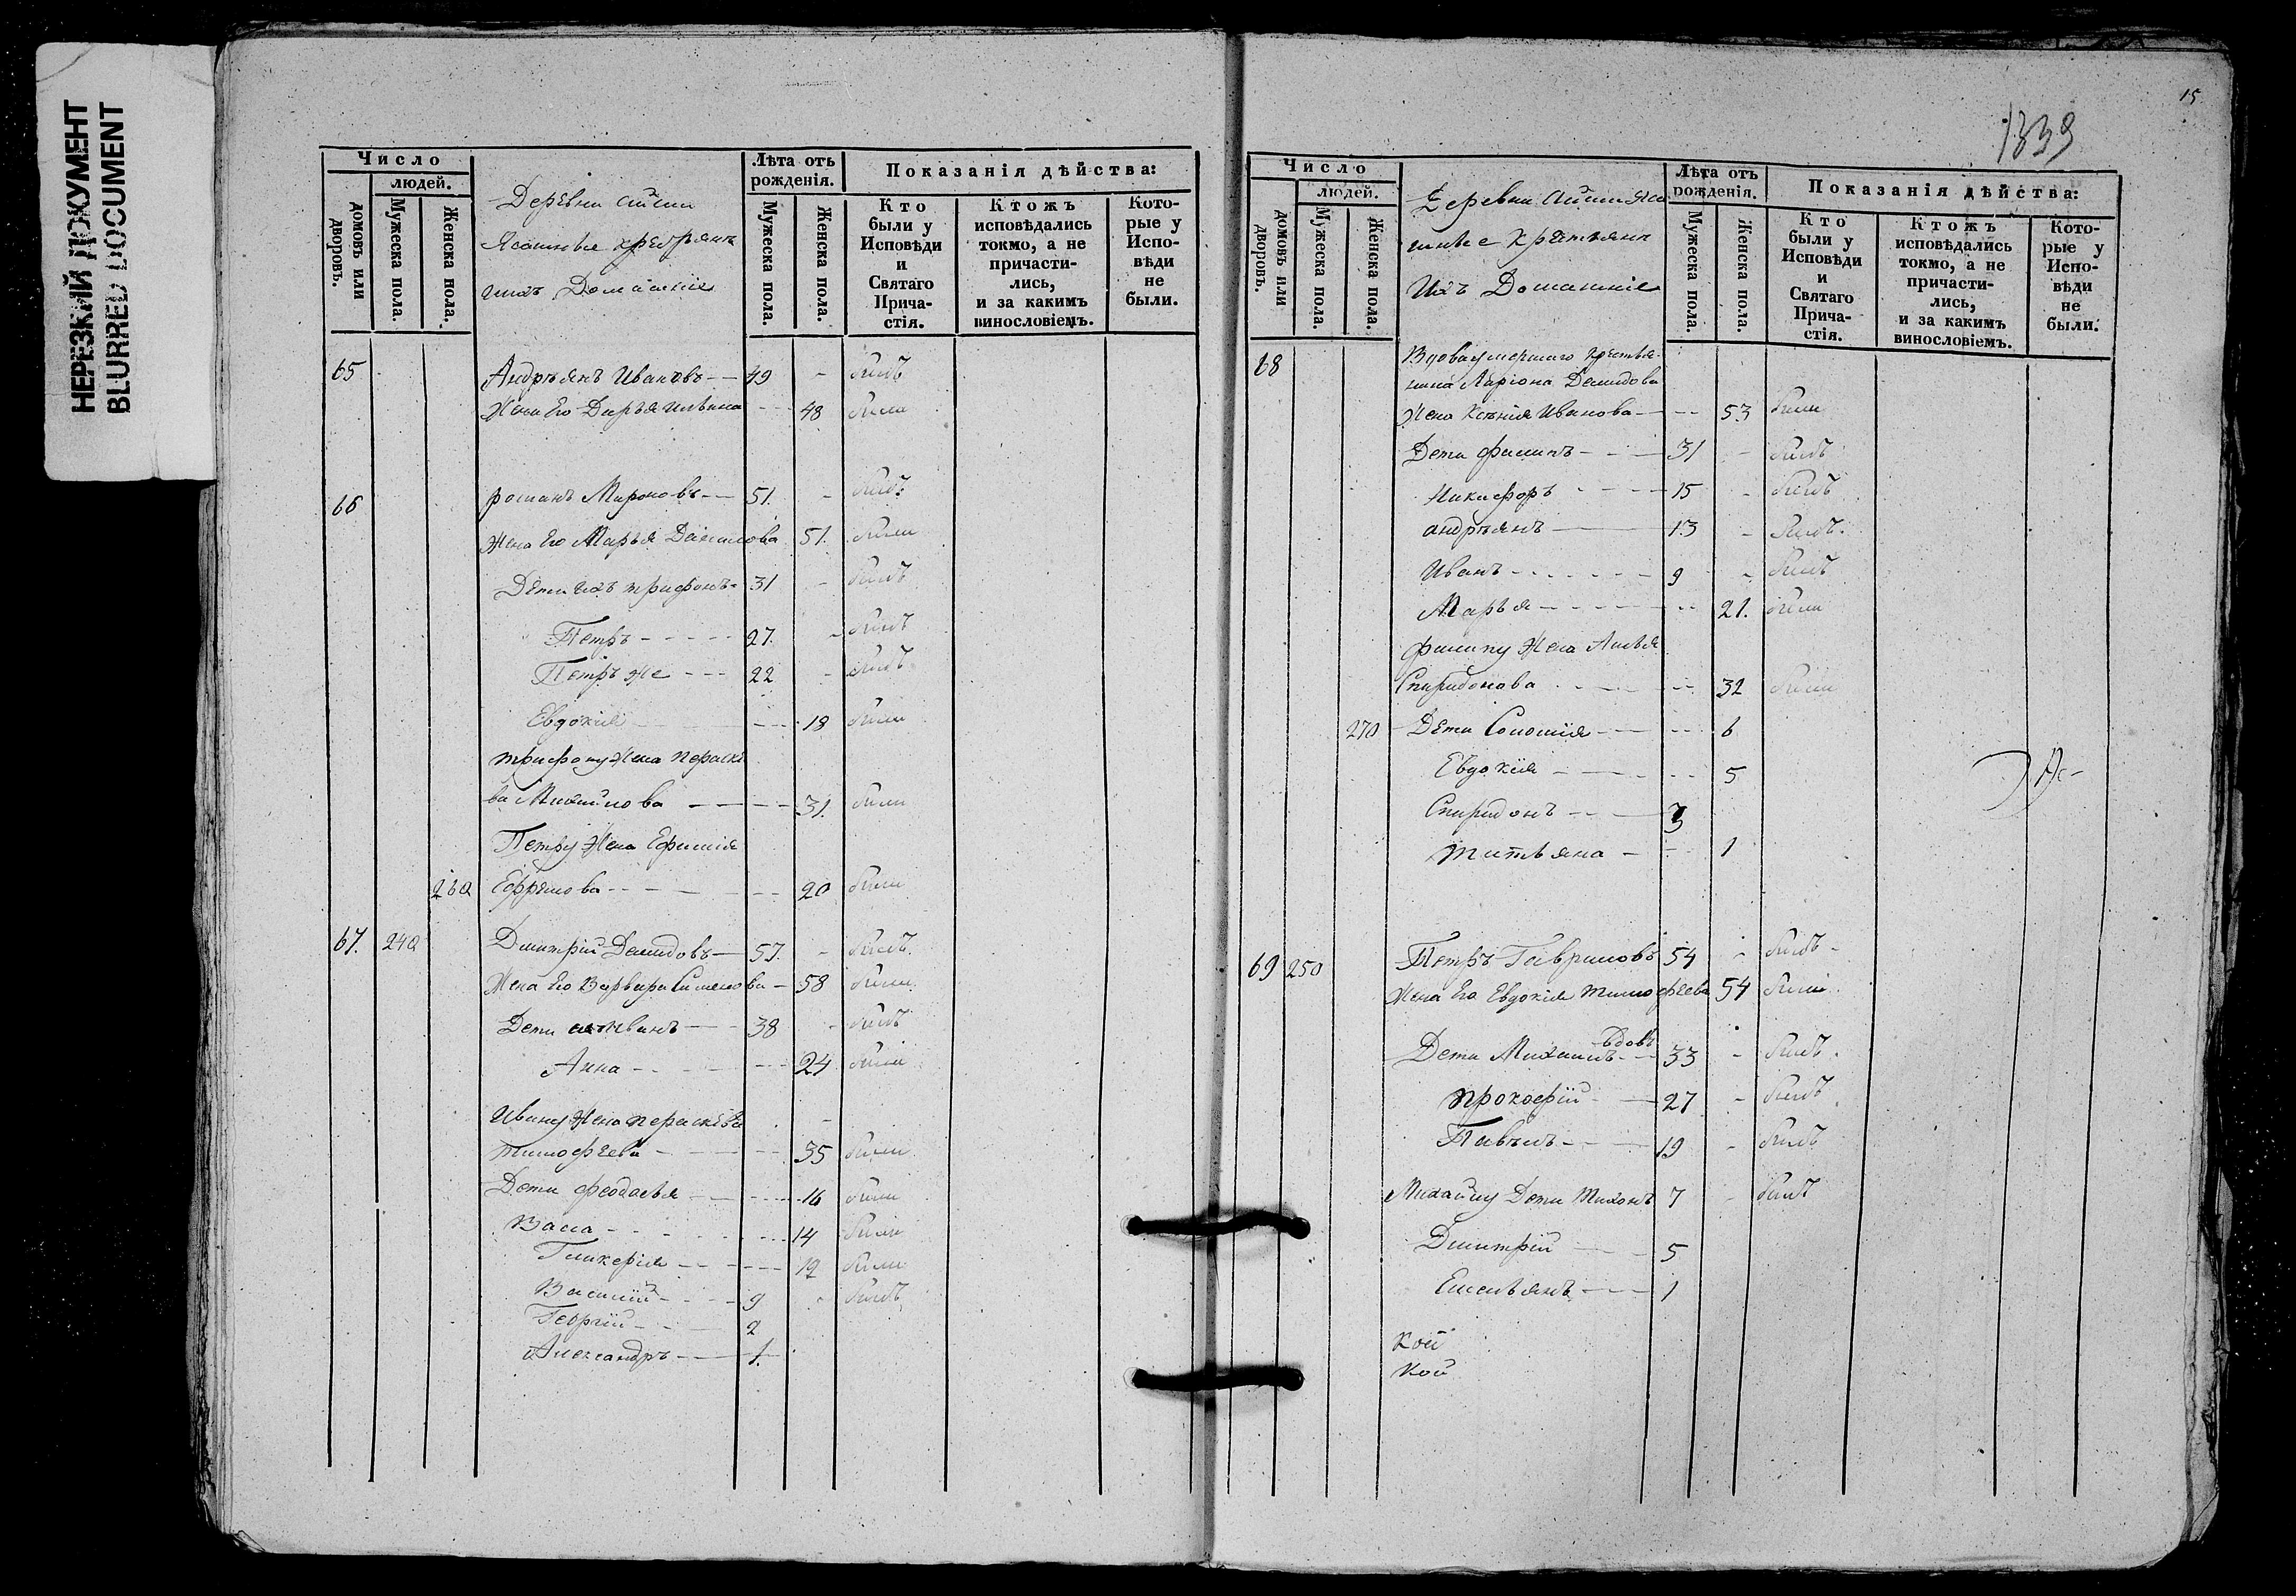 НЕРЕЗКИЙ ДОКУМЕНТ
BLURRED DOCUMENT
Число
людей.
домовъ или дворовъ.
Мужеска пола.
Женска пола.
Деревни Айши
Ясашные крестьяне
ихъ Домашніе
Лѣта отъ рожденія.
Мужеска пола.
Женска пола.
Показанія дѣйства:
Кто были у Исповѣди и Святаго Прича- стія.
Ктожъ исповѣдались токмо, а не причасти- лись, и за какимъ винословіемъ.
Кото- рые у Испо- вѣди не были.
65 Андреянъ Ивановъ 49 - былъ
Жена Его Дарья Ильина 48 были
66 романъ Мироновъ 51. - былъ
Жена Его Марья Данилова 51. были
Дети ихъ трифонъ 31 - былъ
Петръ 27. - былъ
Петръ же 22 - былъ
Евдокия 18 были
трифону Жена Параске
ва Михаилова 31. были
Петру Жена Ефимия
260 Ефремова 20 были
67. 240 Димитрій Демидовъ 57. - былъ
Жена Его Варвара Симено ва 58 были
Дети Иванъ 38 - былъ
Анна 24 были
Ивану Жена Параскева
тимофеева 35 были
Дети Феодосья 16 были
Васса 14 были
Гликерия 12 были
Василий 9 - былъ
Георгий 2
Александръ 1.
15
1839
Число
людей.
домовъ или дворовъ.
Мужеска пола.
Женска пола.
Деревни Айши Яса
шные Крестьяне
Ихъ Домашніе
Лѣта отъ рожденія.
Мужеска пола.
Женска пола.
Показанія дѣйства:
Кто были у Исповѣди и Святаго Прича- стія.
Ктожъ исповѣдались токмо, а не причасти- лись, и за какимъ винословіемъ.
Кото- рые у Испо- вѣди не были.
68 Вдова умершаго крестья-
нина Лариона Демидова
Жена Ксения Иванова 53 были
Дети филипъ 31 - былъ
Никифоръ 15 - былъ
андреянъ 13 - былъ.
Иванъ 9 - былъ
Марья 21. были
филипу Жена
Спиридонова 32 были
270 Дети Соломия 6
Евдокия 5
Спиридонъ 3
татьяна 1
69 250 Петръ Гавриловъ 54 - былъ
Жена Его Евдокия тимофеева 54 были
Дети Михаилъ вдовъ 33 - былъ
прокофий 27 - былъ
Павелъ 19 - былъ
Михаилу Дети тихонъ 7 - былъ
Димитрий 5
Емельянъ 1
кой
кой